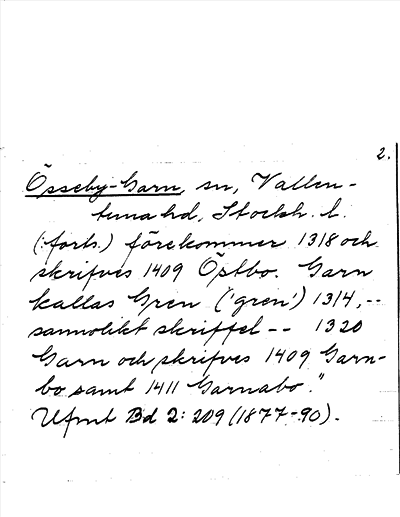 2.
Össeby-Garn, sn, Vallen-
tuna hd, Stockh. l.
(:forts.) förekommer 1318 och
skrifves 1409 Östbo. Garn
kallas Gren ('gren') 1314, --
sannolikt skriffel -- 1320
Garn och skrifves 1409 Garn-
bo samt 1411 Garnabo."
Ufmt Bd 2: 209 (1877-90).